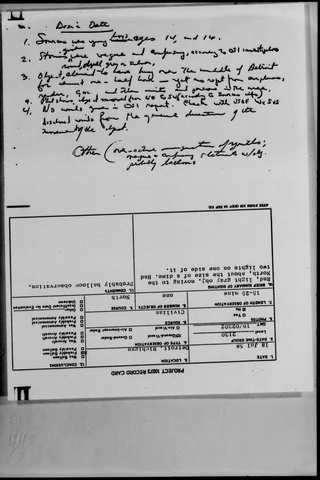 Basic Data
1. Sources were young boys ages 14, and 16.
2. Stories were vague and confusing, according to OSI investigators
3. Object claimed to have been over the middle of Detroit
for almost one-half hour — yet no rept from airplanes,
radar, GOC and other units and persons in the area.
No winds given in OSI report. Check with USAF Wx Svs
disclosed winds from the general direction of the
movement of the object.
Other (over-active imagination of youths;
vague + confusing statements
possibly balloon
PROJECT 10073 RECORD CARD
1. DATE
18 Jul 58
2. LOCATION
Detroit, Michigan
3. DATE-TIME GROUP
Local 2130
GMT 19/0230Z
4. TYPE OF OBSERVATION
Ground-Visual
Ground-Radar
Air-Visual
Air-Intercept Radar
5. PHOTOS
Yes
No
6. SOURCE
Civilian
7. LENGTH OF OBSERVATION
15-25 mins
8. NUMBER OF OBJECTS
one
9. COURSE
North
10. BRIEF SUMMARY OF SIGHTING
Red, light gray obj, moving to the
North, about the size of a dime. Had
two lights on one side of it.
11. COMMENTS
Probably balloon observation.
12. CONCLUSIONS
Was Balloon
Probably Balloon
Possibly Balloon
Was Aircraft
Probably Aircraft
Possibly Aircraft
Was Astronomical
Probably Astronomical
Possibly Astronomical
Other
Insufficient Data for Evaluation
Unknown
ATIC FORM 329 (REV 26 SEP 52)